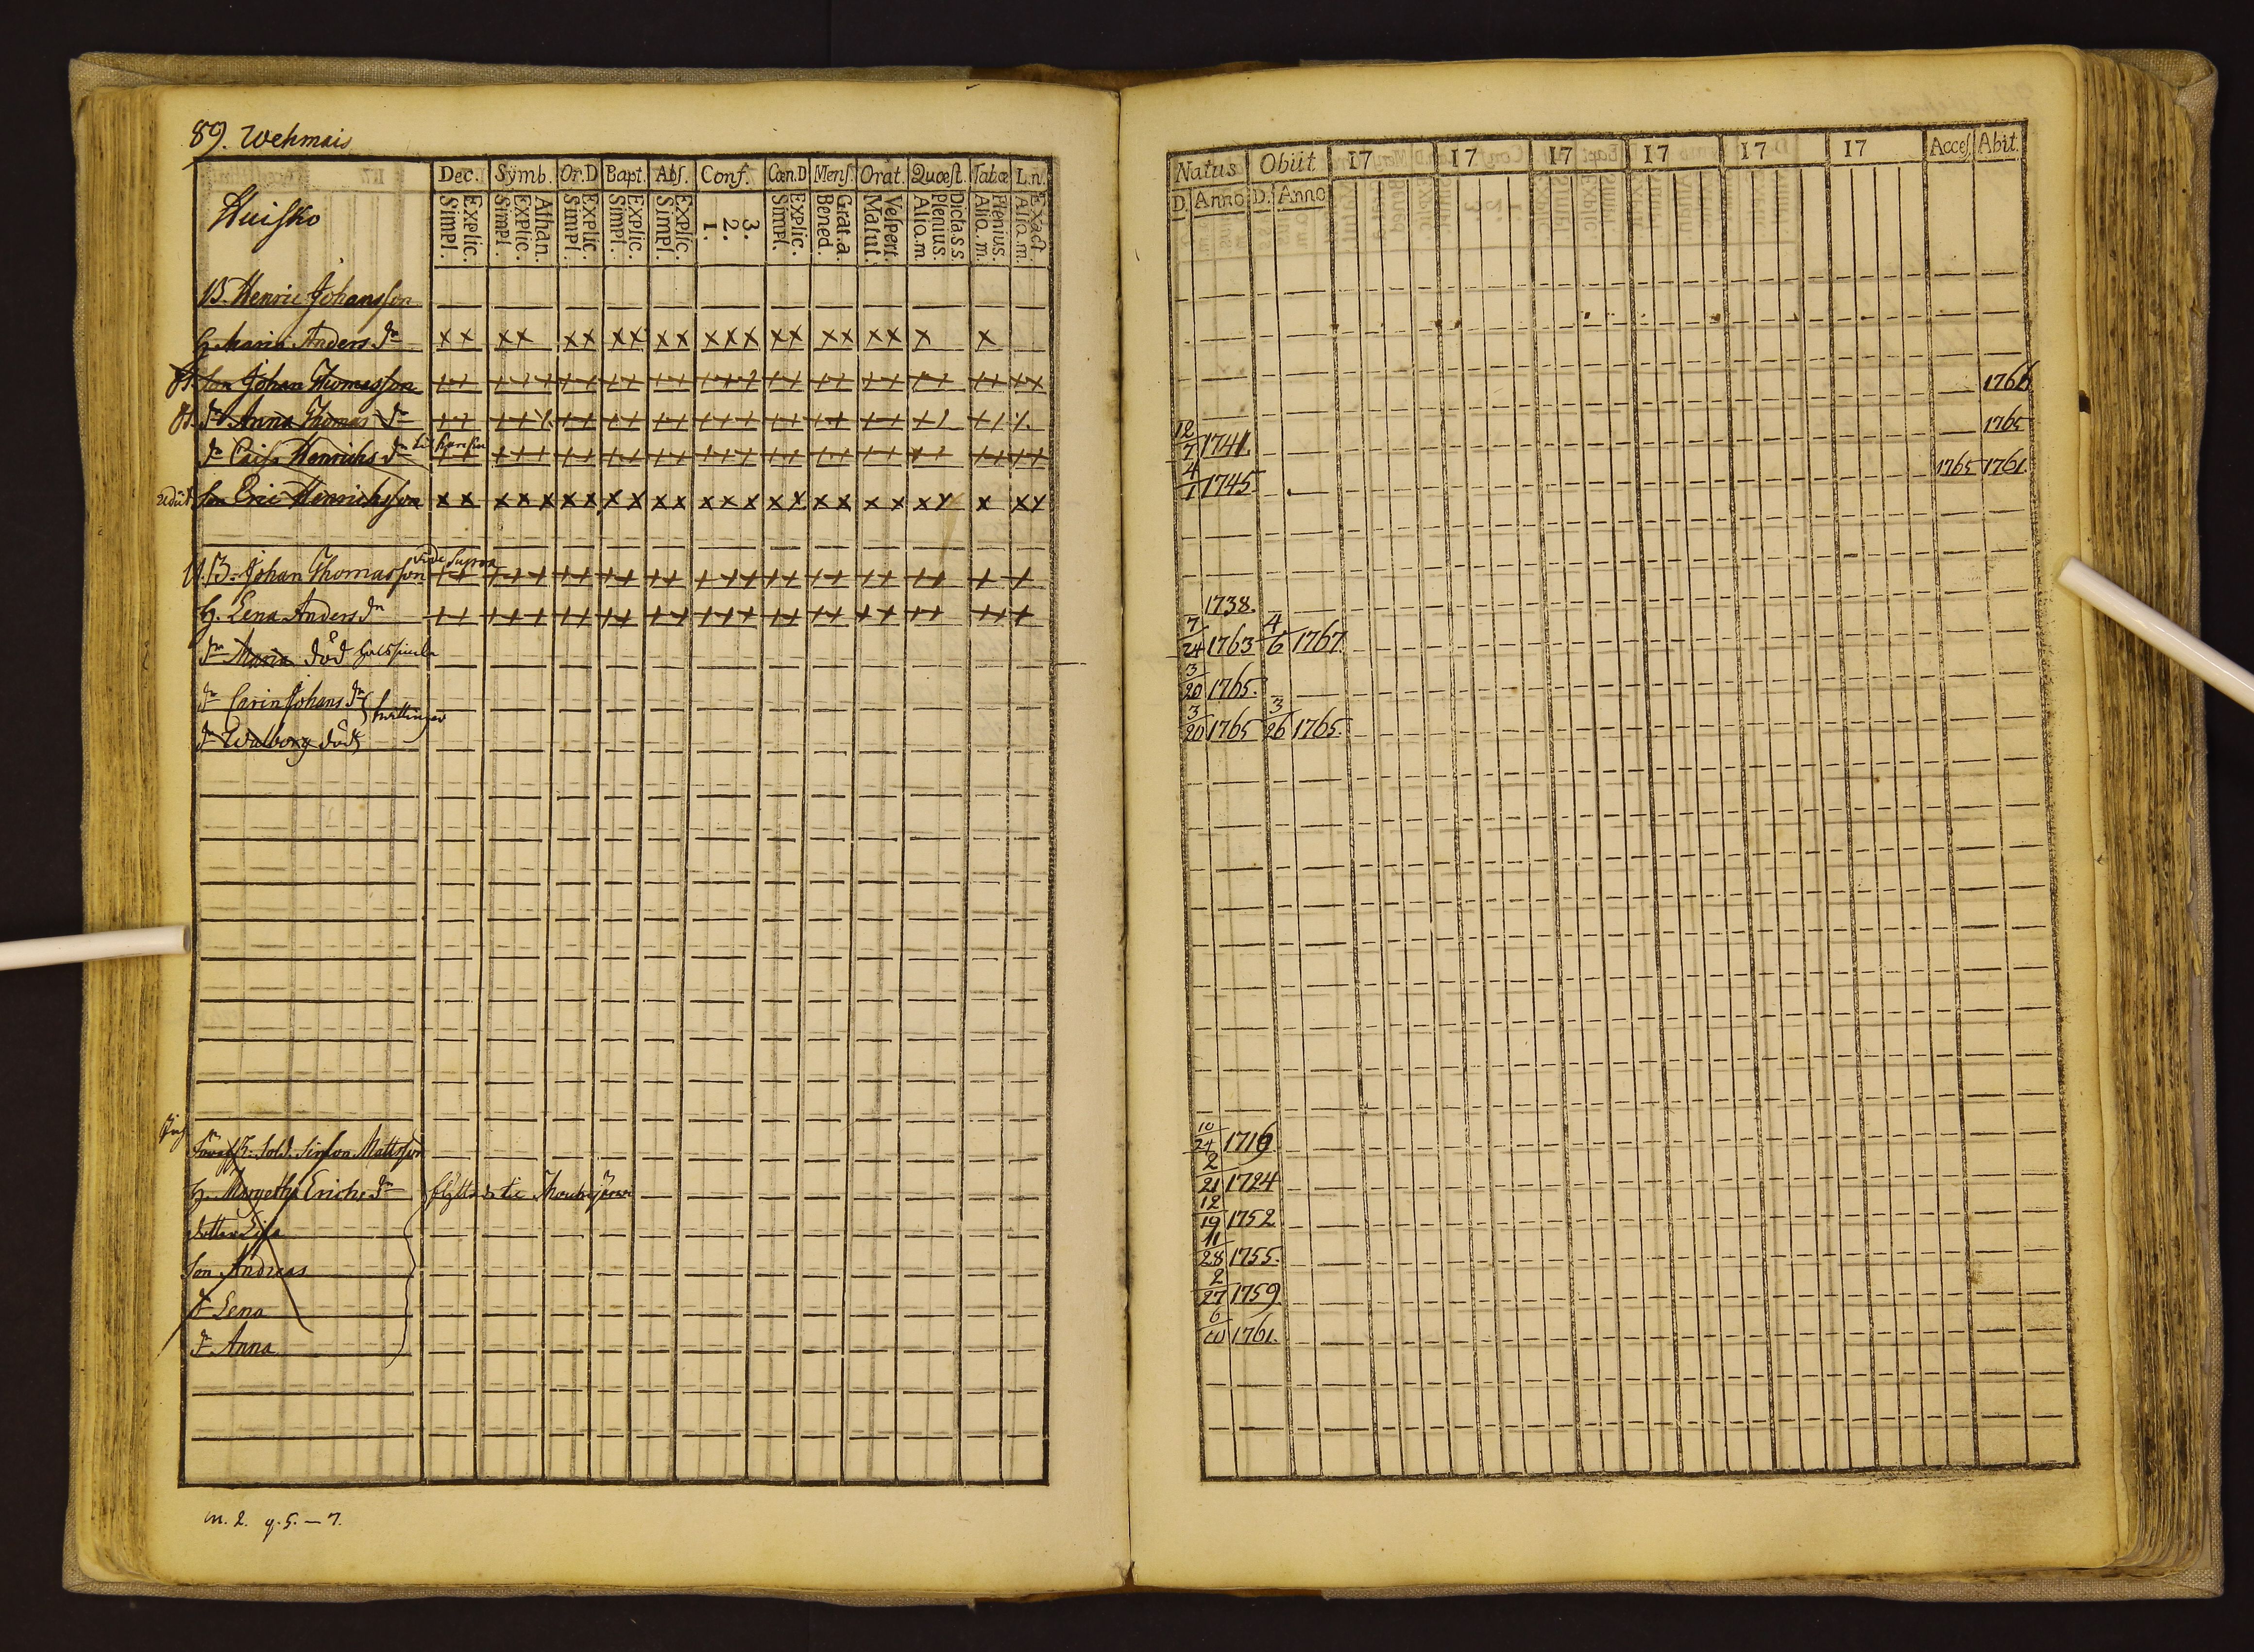 89. Wehmais
Dec. Symb. Or.D Bapt. Abs. Conf. Cœn.D Mens. Orat. Quœst. Tabœ L.n.
Huisko
Explic. Simpl. Athan. Explic. Simpl. Explic. Simpl. Explic. Simpl. Explic. Simpl. 3. 2. 1. Explic. Simpl. Grat.a. Bened. Vespert. Matut. Dicta.s.s. Plenius. Aliq.m. Plenius. Aliq.m. Exact. Aliq.m.
B. Henric Johansson
H. Maria Anders dr x x x x x x x x x x x x x x x x x x x x x
Son Johan Thomasson
dr Anna Thomas dr
dr Caisa Henrichs dr
Son Eric Henrichsson x x x x x x x x x x x x x x x x x x x x x x x x x
B. Johan Thomasson vide supra
H. Lena Anders dr
dr Maria död
dr Carin Johans dr
tvillingar
dr Walborg död
Sold. Simon Mattsson
H. Margetha Erichs dr flytta til
dotter Lisa
Son Andreas
dr Lena
dr Anna
m. 2. q. 5. — 7.
Natus Obiit 17 17 17 17 17 17 Acces. Abit.
D. Anno D. Anno
1766
12/7 1741. 1765
4/1 1745 1765 1761
1738.
7/24 1763 4/6 1767
3/20 1765.
3/20 1765 3/26 1765.
10/24 1716
2/21 1724
12/19 1752
11/28 1755.
2/27 1759
6/10 1761.